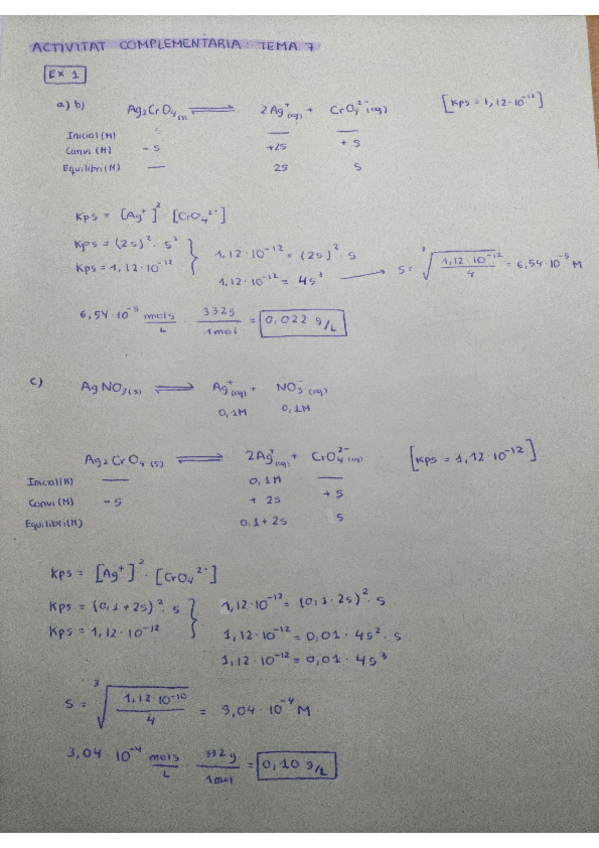 ACTIVITAT COMPLEMENTÀRIA: TEMA 7
EX 1
a) b) Ag₂CrO₄ (s) ⇌ 2Ag⁺(aq) + CrO₄²⁻(aq) [Kps = 1,12·10⁻¹²]
Inicial (M) — —
Canvi (M) - s +2s + s
Equilibri (M) — 2s s
Kps = [Ag⁺]² · [CrO₄²⁻]
Kps = (2s)² · s² } 1,12·10⁻¹² = (2s)² · s
Kps = 1,12·10⁻¹² 1,12·10⁻¹² = 4s³ → s = ³√(1,12·10⁻¹²/4) = 6,54·10⁻⁵ M
6,54·10⁻⁵ mols/L · 332g/1mol = 0,022 g/L
c) AgNO₃(s) ⇌ Ag⁺(aq) + NO₃⁻(aq)
0,1M 0,1M
Ag₂CrO₄(s) ⇌ 2Ag⁺(aq) + CrO₄²⁻(aq) [Kps = 1,12·10⁻¹²]
Inicial (M) — 0,1M —
Canvi (M) - s + 2s + s
Equilibri (M) 0,1 + 2s s
Kps = [Ag⁺]² · [CrO₄²⁻]
Kps = (0,1 + 2s)² · s } 1,12·10⁻¹² = (0,1 · 2s)² · s
Kps = 1,12·10⁻¹² 1,12·10⁻¹² = 0,01 · 4s² · s
1,12·10⁻¹² = 0,01 · 4s³
s = ³√(1,12·10⁻¹⁰/4) = 3,04·10⁻⁴ M
3,04·10⁻⁴ mols/L · 332g/1mol = 0,10 g/L